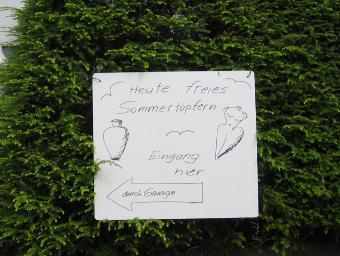 Heute freies
Sommertöpfern
Eingang
hier
durch Garage